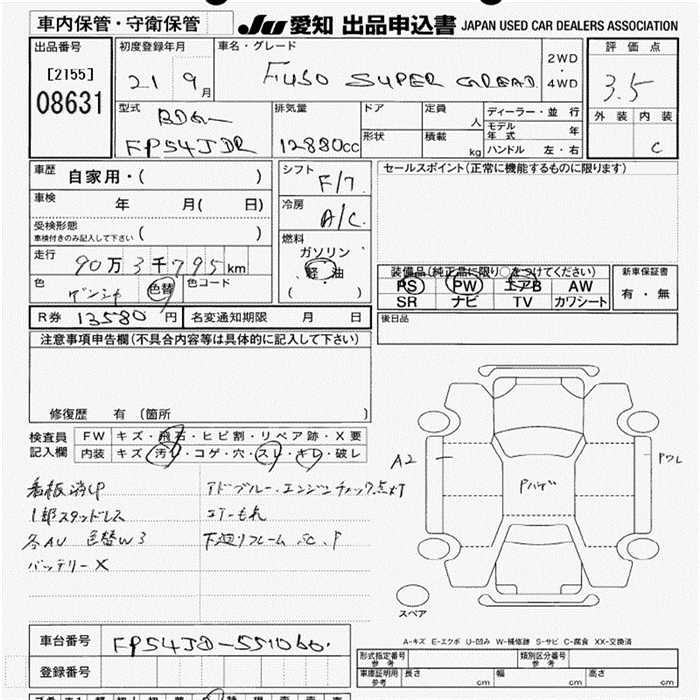 車内保管・守衛保管
JU 愛知 出品申込書 JAPAN USED CAR DEALERS ASSOCIATION
出品番号
[2155]
08631
初度登録年月
21 9月
車名・グレード
FUSO SUPER GREAD
2WD
・
4WD
評価点
3.5
外装 内装
C
型式
BDG-
FP54JDR
排気量
12880cc
ドア
形状
定員
人
積載
kg
ディーラー・並行
モデル年式 年
ハンドル 左・右
車歴 自家用・( )
車検 年 月( 日)
受検形態
車検付きのみ記入して下さい ( )
走行 90万3千795km
色 ゲンシャ 色替 色コード
シフト F/7
冷房 A/C
燃料
ガソリン
軽油
( )
セールスポイント(正常に機能するものに限ります)
装備品(純正品に限り○をつけてください)
PS PW エアB AW
SR ナビ TV カワシート
新車保証書
有・無
後日品
R券 13580円 名変通知期限 月 日
注意事項申告欄(不具合内容等は具体的に記入して下さい)
修復歴 有 (箇所 )
検査員記入欄
FW キズ・飛石・ヒビ割・リペア跡・X要
内装 キズ・汚れ・コゲ・穴・スレ・キレ・破レ
看板消し
アドブルー・エンジンチェック点灯
1部スタッドレス
エアーもれ
各AU 色替W3
下廻りフレームSC.P
バッテリーX
A2
Pハゲ
Pワレ
スペア
A-キズ E-エクボ U-凹み W-補修跡 S-サビ C-腐食 XX-交換済
車台番号 FP54JD-551060
登録番号
形式指定番号 参考
類別区分番号 参考
車庫証明用 参考 長さ cm 幅 cm 高さ cm